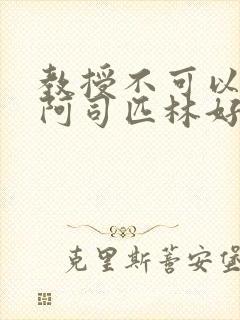 教授不可以
阿司匹林好
克里斯蒂安堡